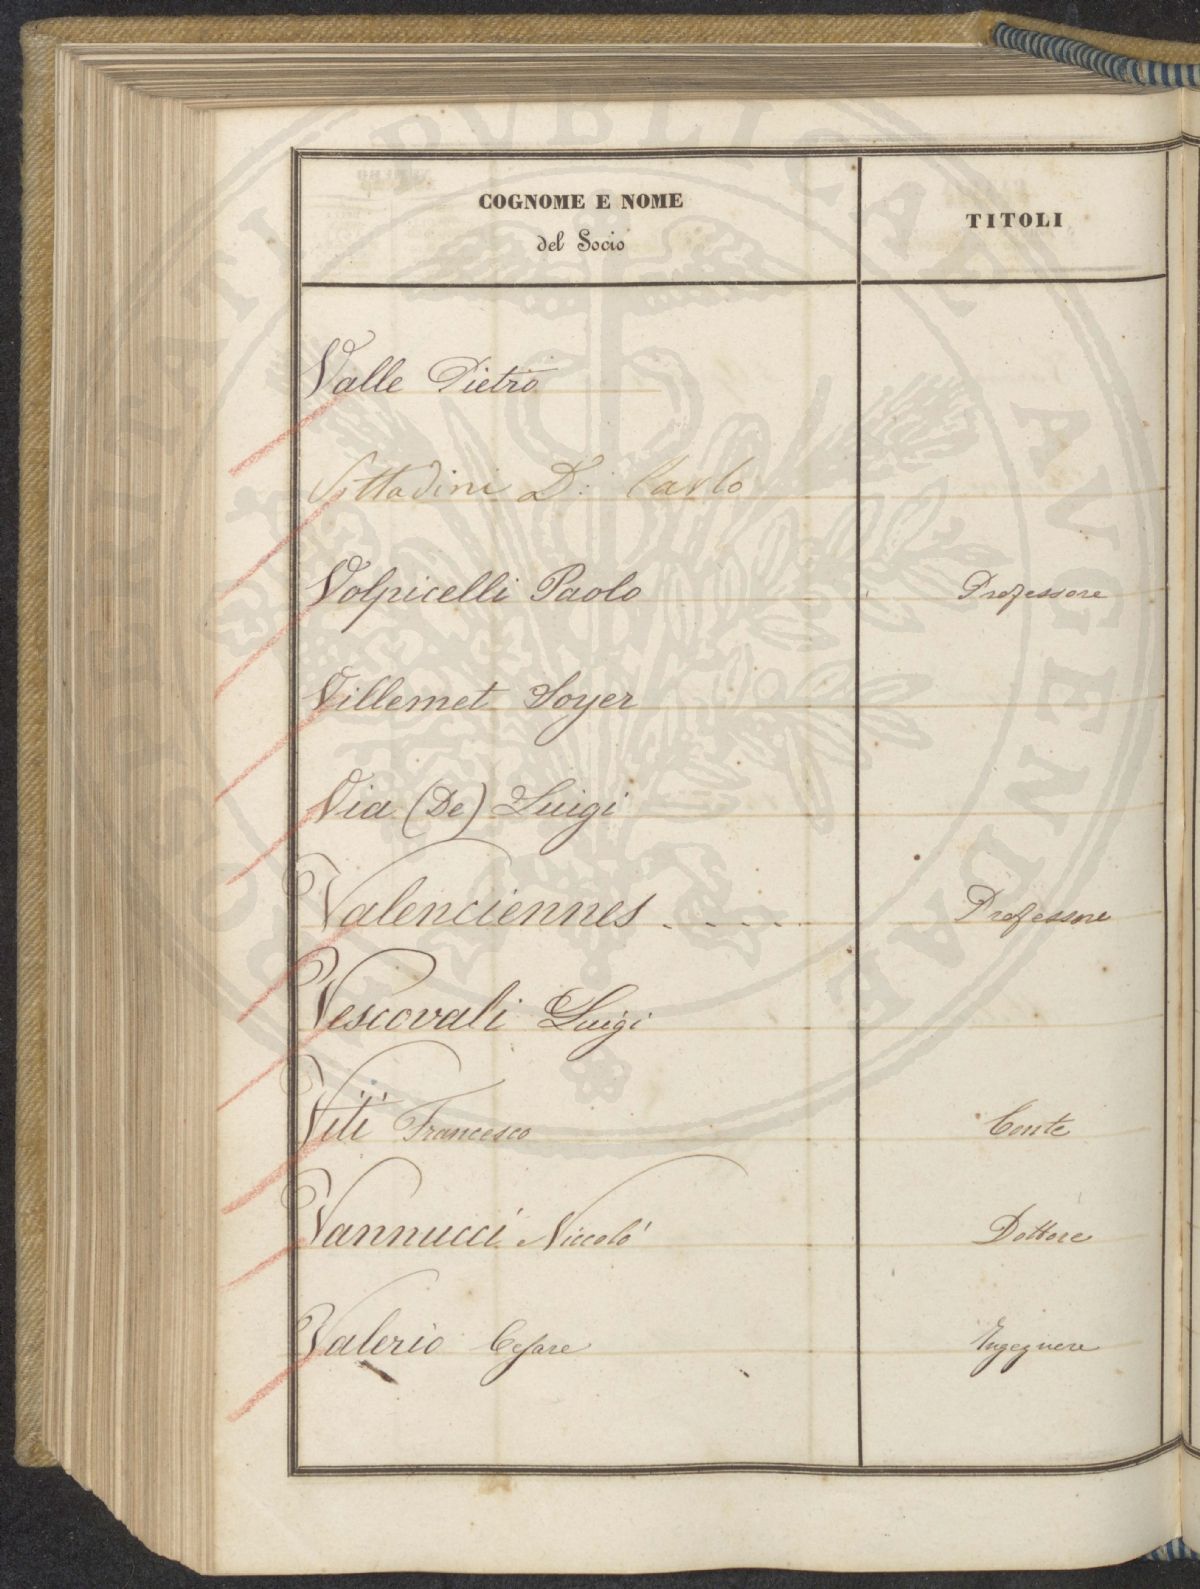 COGNOME E NOME
del Socio
TITOLI
Valle Pietro
Vittadini D. Carlo
Volpicelli Paolo Professore
Villemet Soyer
Via (De) Luigi
Valenciennes . . . . . Professore
Vescovali Luigi
Viti Francesco Conte
Vannucci Niccolò Dottore
Valerio Cesare Ingegnere